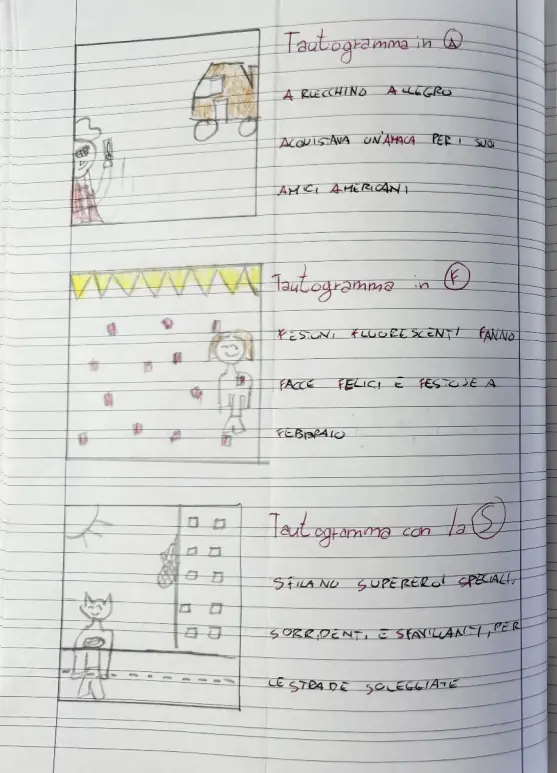 Tautogramma in A
ARLECCHINO ALLEGRO
ACQUISTAVA UN'AMACA PER I SUOI
AMICI AMERICANI
Tautogramma in F
FESTONI FLUORESCENTI FANNO
FACCE FELICI E FESTOSE A
FEBBRAIO
Tautogramma con la S
SFILANO SUPEREROI SPECIALI,
SORRIDENTI E SFAVILLANTI, PER
LE STRADE SOLEGGIATE